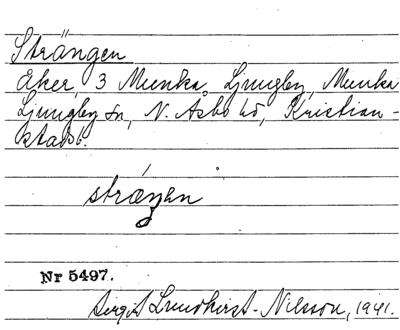 Strängen
Åker, 3 Munka Ljungby, Munka
Ljungby sn, N. Åsbo hd, Kristian-
stads l.
Nr 5497.
Birgit Lundkvist-Nilsson, 1941.